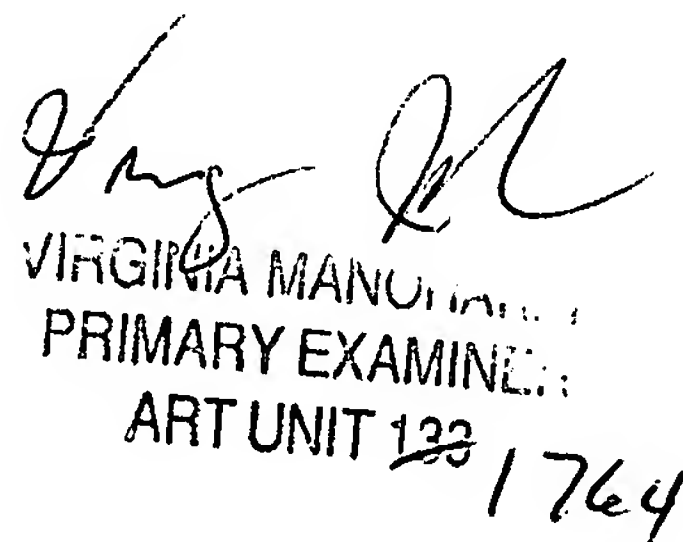 VIRGINIA
PRIMARY EXAMINER
ART UNIT 133 1764